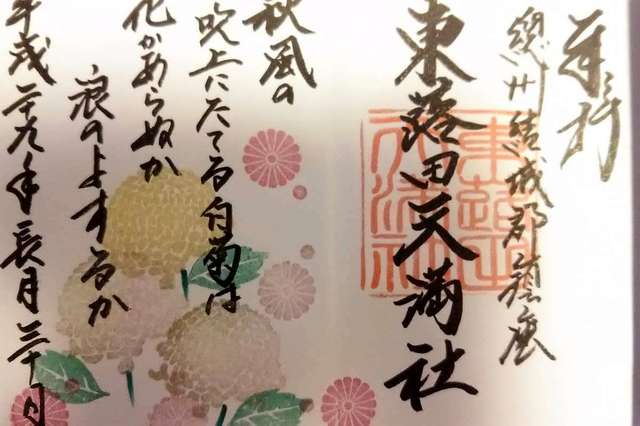 奉拝
總州結城郡鎮座
東蕗田天満社
秋風の
吹上にたてる白菊は
花かあらぬか
浪のよするか
平成二十九年長月三十日